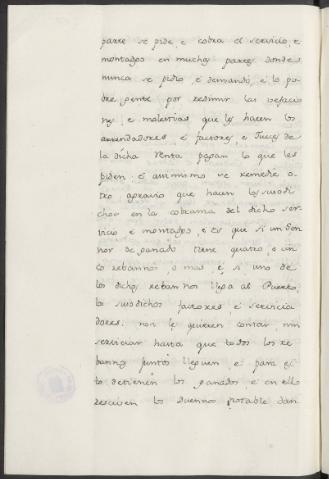 parte se pide, e cobra el servicio, e
montadgo en muchas partes donde
nunca se pidio, e demandó, e la po
bre gente por redimir las vejacio
nes e molestias que les hacen los
arrendadores e factores, e Jueces de
la dicha renta pagan lo que les
piden. E assimismo se remedie o
tro agravio que hacen los susodi
chos en la cobranza del dicho ser
vicio e montadgo, e es que si un Sen
nor de ganado tiene quatro, e cin
co rebannos, o mas e, si uno de
los dichos rebannos llega al Puerto,
los susodichos factores, e servicia
dores, non le quieren contar, nin
serviciar hasta que todos los re
bannos juntos lleguen e para es
to detienen los ganados, e en ello
resciben los duennos notable dan